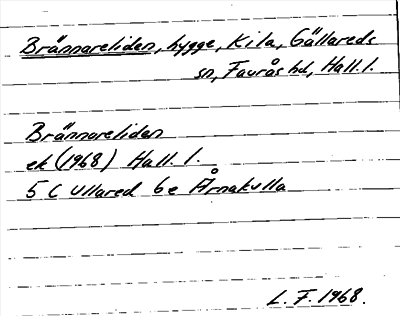 Brännareliden, hygge, Kila, Gällareds
sn, Faurås hd, Hall. l.
Brännareliden
ek (1968) Hall. l.
5 C Ullared 6e Årnakulla
L. F. 1968.